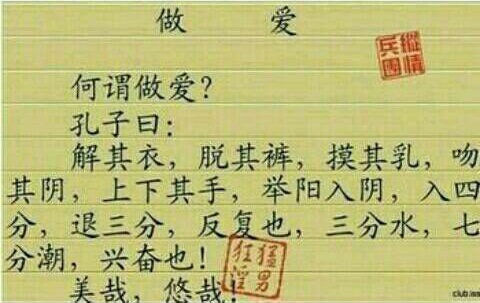 做 爱
纵情
兵团
何谓做爱？
孔子曰：
解其衣，脱其裤，摸其乳，吻
其阴，上下其手，举阳入阴，入四
分，退三分，反复也，三分水，七
分潮，兴奋也！
猛男
狂淫
美哉，悠哉！